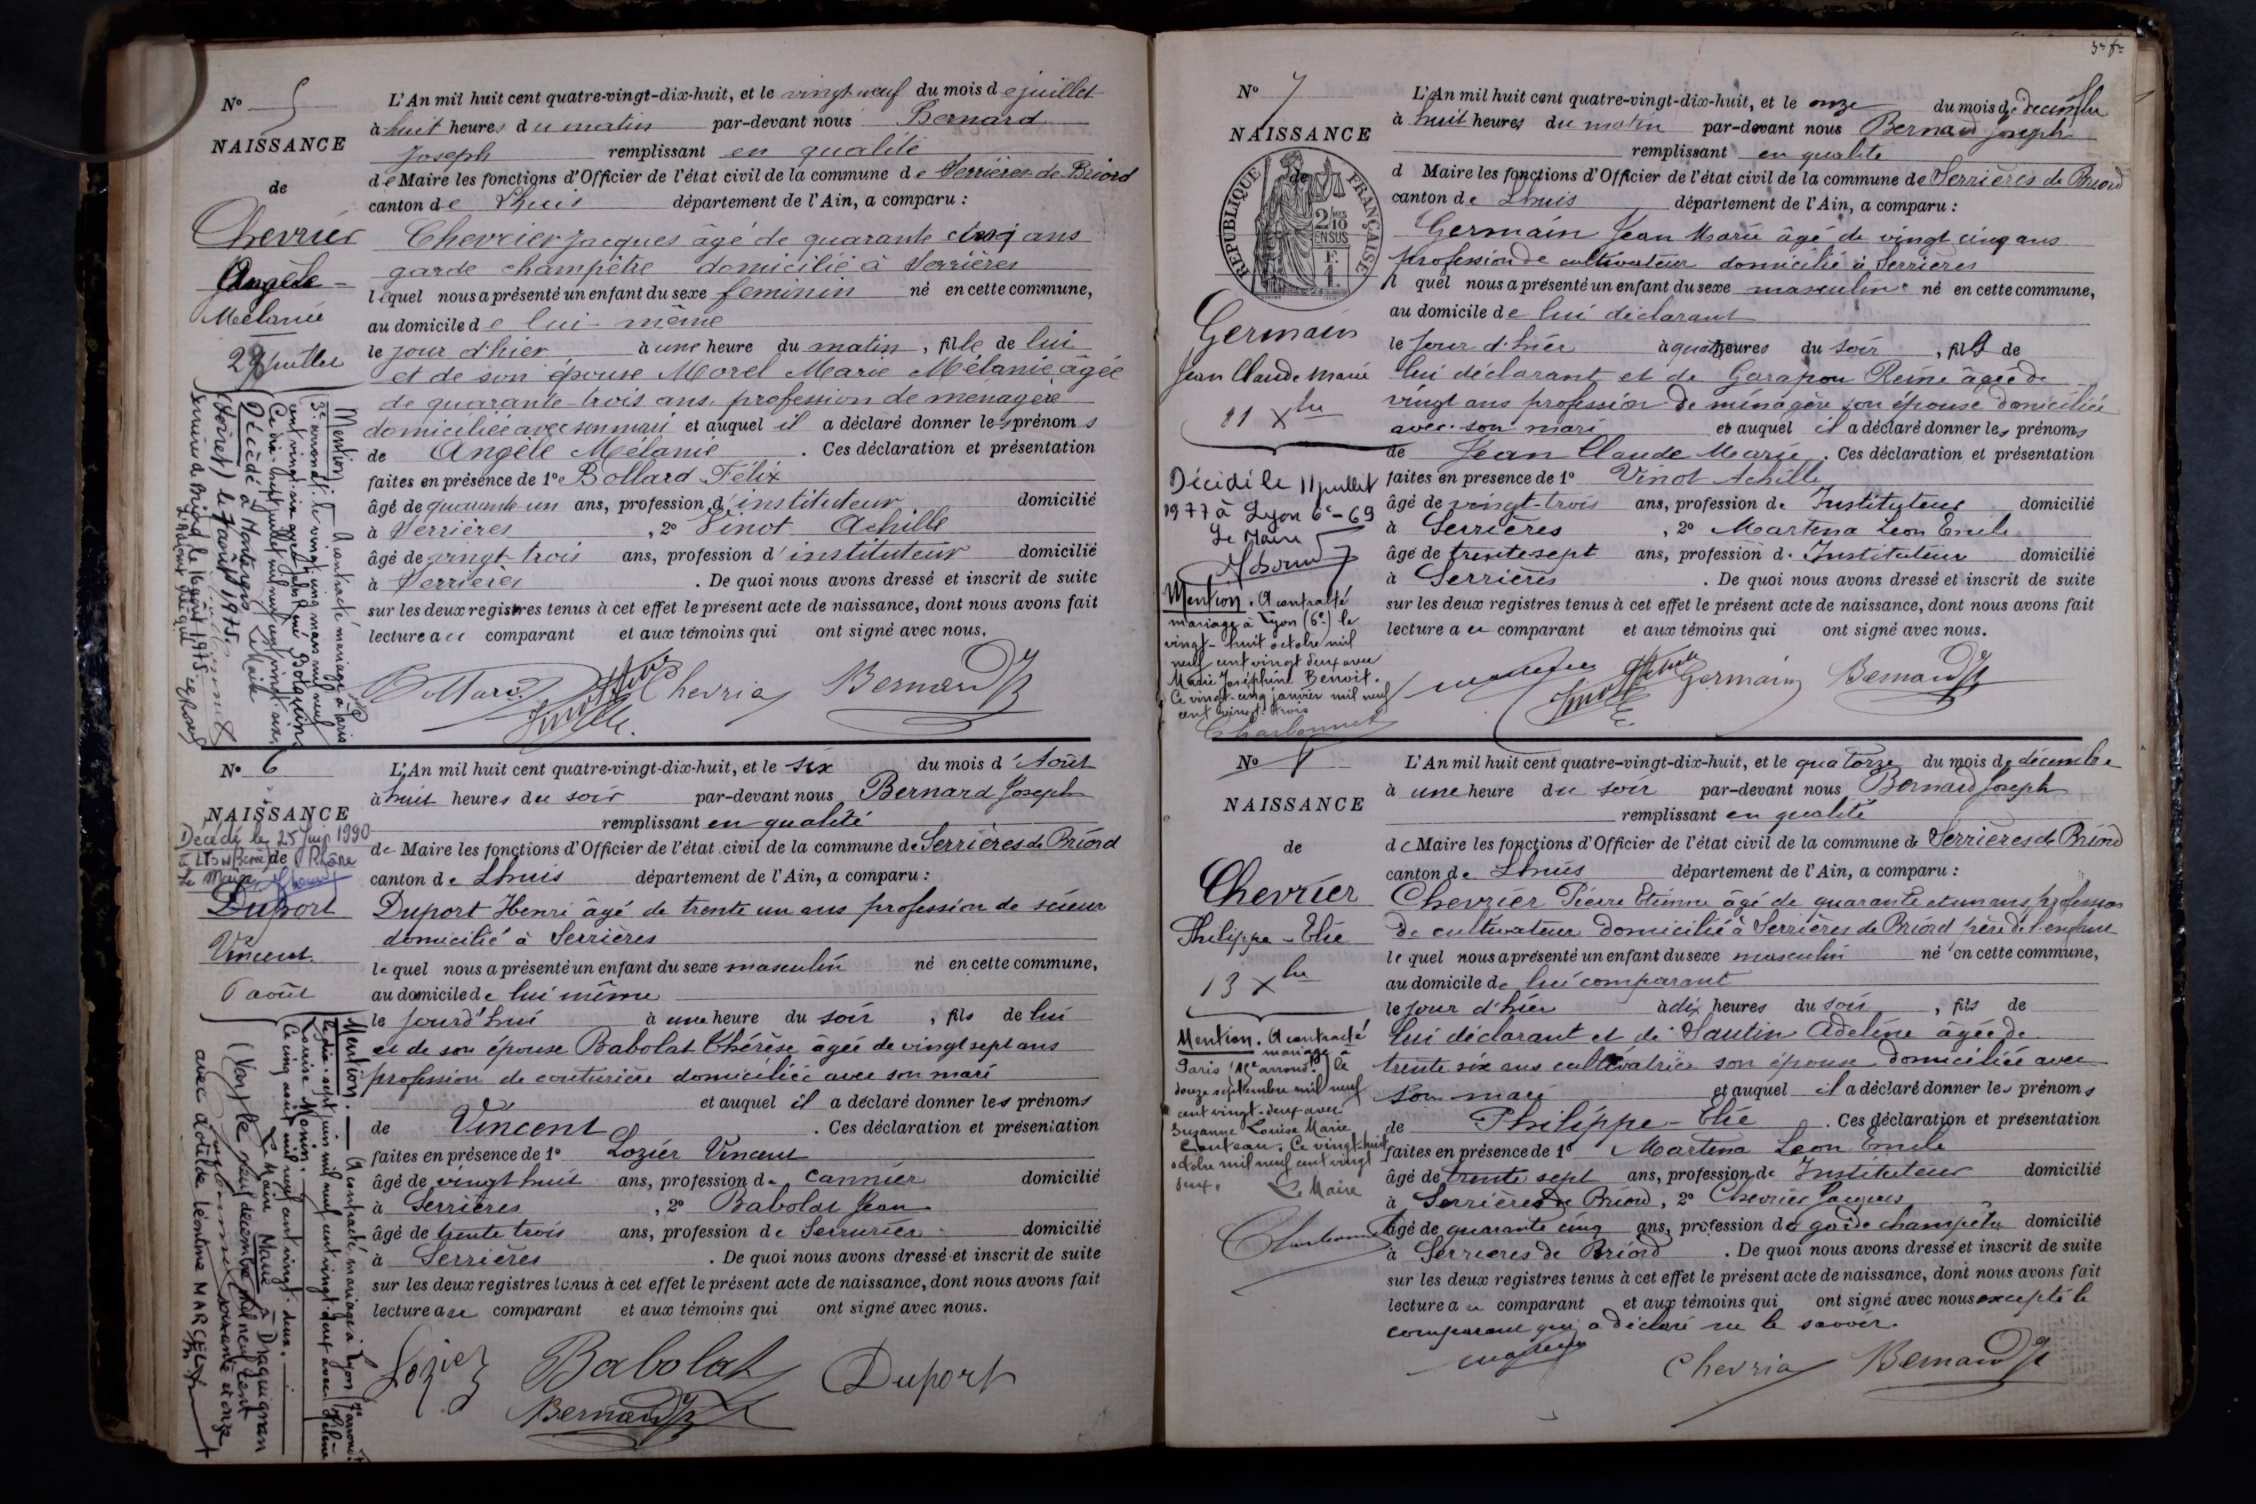 N° 5
NAISSANCE
de
Chevrier
Angèle
Mélanie
28 juillet
Mention. A contracté mariage à Paris
le vingt cinq mars mil neuf
cent vingt-six avec
Ce dix-sept juillet mil neuf cent vingt-six
Le Maire
Décédé à Montargis
(Loiret) le 7 août 1975.
Serrières de Briord le 16 août 1975
L'An mil huit cent quatre-vingt-dix-huit, et le vingt neuf du mois de juillet
à huit heures du matin par-devant nous Bernard
Joseph remplissant en qualité
de Maire les fonctions d'Officier de l'état civil de la commune de Serrières de Briord
canton de Lhuis département de l'Ain, a comparu :
Chevrier Jacques âgé de quarante cinq ans
garde champêtre domicilié à Serrières
lequel nous a présenté un enfant du sexe feminin né en cette commune,
au domicile de lui-même
le jour d'hier à une heure du matin, fille de lui
et de son épouse Morel Marie Mélanie âgée
de quarante-trois ans profession de ménagère
domiciliée avec son mari et auquel il a déclaré donner les prénoms
de Angèle Mélanie. Ces déclaration et présentation
faites en présence de 1° Bollard Félix
âgé de quarante un ans, profession d'instituteur domicilié
à Serrières, 2° Vinot Achille
âgé de vingt trois ans, profession d'instituteur domicilié
à Serrières. De quoi nous avons dressé et inscrit de suite
sur les deux registres tenus à cet effet le présent acte de naissance, dont nous avons fait
lecture au comparant et aux témoins qui ont signé avec nous.
Bollard Chevrier Bernard
N° 6
NAISSANCE
Décédé le 25 Juin 1990
de Rhône
Le Maire
Duport
Vincent
6 août
Mention. A contracté mariage à Lyon
le dix-sept juin mil neuf cent vingt-deux avec Hélène
Louise Monin.
Ce cinq août mil neuf cent vingt-deux.
Le Maire
Marié à Draguignan
(Var) le neuf décembre mil neuf cent
soixante et onze
avec Clotilde Léontine MARCEL
L'An mil huit cent quatre-vingt-dix-huit, et le six du mois d'Août
à huit heures du soir par-devant nous Bernard Joseph
remplissant en qualité
de Maire les fonctions d'Officier de l'état civil de la commune de Serrières de Briord
canton de Lhuis département de l'Ain, a comparu :
Duport Henri âgé de trente un ans profession de scieur
domicilié à Serrières
lequel nous a présenté un enfant du sexe masculin né en cette commune,
au domicile de lui même
le jourd'hui à une heure du soir, fils de lui
et de son épouse Babolat Thérèse agée de vingt sept ans
profession de couturière domiciliée avec son mari
et auquel il a déclaré donner les prénoms
de Vincent. Ces déclaration et présentation
faites en présence de 1° Lozier Vincent
âgé de vingt huit ans, profession de cannier domicilié
à Serrières, 2° Babolat Jean
âgé de trente trois ans, profession de Serrurier domicilié
à Serrières. De quoi nous avons dressé et inscrit de suite
sur les deux registres tenus à cet effet le présent acte de naissance, dont nous avons fait
lecture au comparant et aux témoins qui ont signé avec nous.
Lozier Babolat Duport
Bernard
N° 7
NAISSANCE
de
REPUBLIQUE FRANÇAISE
2/10 EN SUS
Germain
Jean Claude Marie
11 Xbre
Décédé le 11 juillet
1977 à Lyon 6e-69
Le Maire
Mention. A contracté
mariage à Lyon (6e) le
vingt-huit octobre mil
neuf cent vingt deux avec
Marie Joséphine Benoit.
Ce vingt-cinq janvier mil neuf
cent vingt-trois
Charbonnet
L'An mil huit cent quatre-vingt-dix-huit, et le onze du mois de decembre
à huit heures du matin par-devant nous Bernard Joseph
remplissant en qualité
d Maire les fonctions d'Officier de l'état civil de la commune de Serrières de Briord
canton de Lhuis département de l'Ain, a comparu :
Germain Jean Marie âgé de vingt cinq ans
profession de cultivateur domicilié à Serrières
l quel nous a présenté un enfant du sexe masculin né en cette commune,
au domicile de lui déclarant
le jour d'hier à quatre heures du soir, fils de
lui déclarant et de Garapon Reine âgée de
vingt ans profession de ménagère son épouse domiciliée
avec son mari et auquel il a déclaré donner les prénoms
de Jean Claude Marie. Ces déclaration et présentation
faites en presence de 1° Vinot Achille
âgé de vingt-trois ans, profession de Instituteur domicilié
à Serrières, 2° Martena Leon Emile
âgé de trente-sept ans, profession d. Instituteur domicilié
à Serrières. De quoi nous avons dressé et inscrit de suite
sur les deux registres tenus à cet effet le présent acte de naissance, dont nous avons fait
lecture au comparant et aux témoins qui ont signé avec nous.
Germain Bernard
N° 8
NAISSANCE
de
Chevrier
Philippe-Elie
13 Xbre
Mention. A contracté
mariage à
Paris arrond.t) le
douze septembre mil neuf
cent vingt-deux avec
Suzanne Louise Marie
Conteau. Ce vingt-huit
octobre mil neuf cent vingt
deux. Le Maire
Charbonnet
L'An mil huit cent quatre-vingt-dix-huit, et le quatorze du mois de décembre
à une heure du soir par-devant nous Bernard Joseph
remplissant en qualité
de Maire les fonctions d'Officier de l'état civil de la commune de Serrières de Briord
canton de Lhuis département de l'Ain, a comparu :
Chevrier Pierre Etienne âgé de quarante et un ans profession
de cultivateur domicilié à Serrières de Briord père de l'enfant
lequel nous a présenté un enfant du sexe masculin né en cette commune,
au domicile de lui comparant
le jour d'hier à dix heures du soir, fils de
lui déclarant et de Sautin Adeline âgée de
trente six ans cultivatrice son épouse domiciliée avec
son mari et auquel il a déclaré donner les prénoms
de Philippe-Elie. Ces déclaration et présentation
faites en présence de 1° Martena Leon Emile
âgé de trente sept ans, profession de Instituteur domicilié
à Serrières de Briord, 2° Chevrier Jacques
âgé de quarante cinq ans, profession de garde champêtre domicilié
à Serrieres de Briord. De quoi nous avons dressé et inscrit de suite
sur les deux registres tenus à cet effet le présent acte de naissance, dont nous avons fait
lecture au comparant et aux témoins qui ont signé avec nous excepté le
comparant qui a déclaré ne le savoir.
Chevrier Bernard